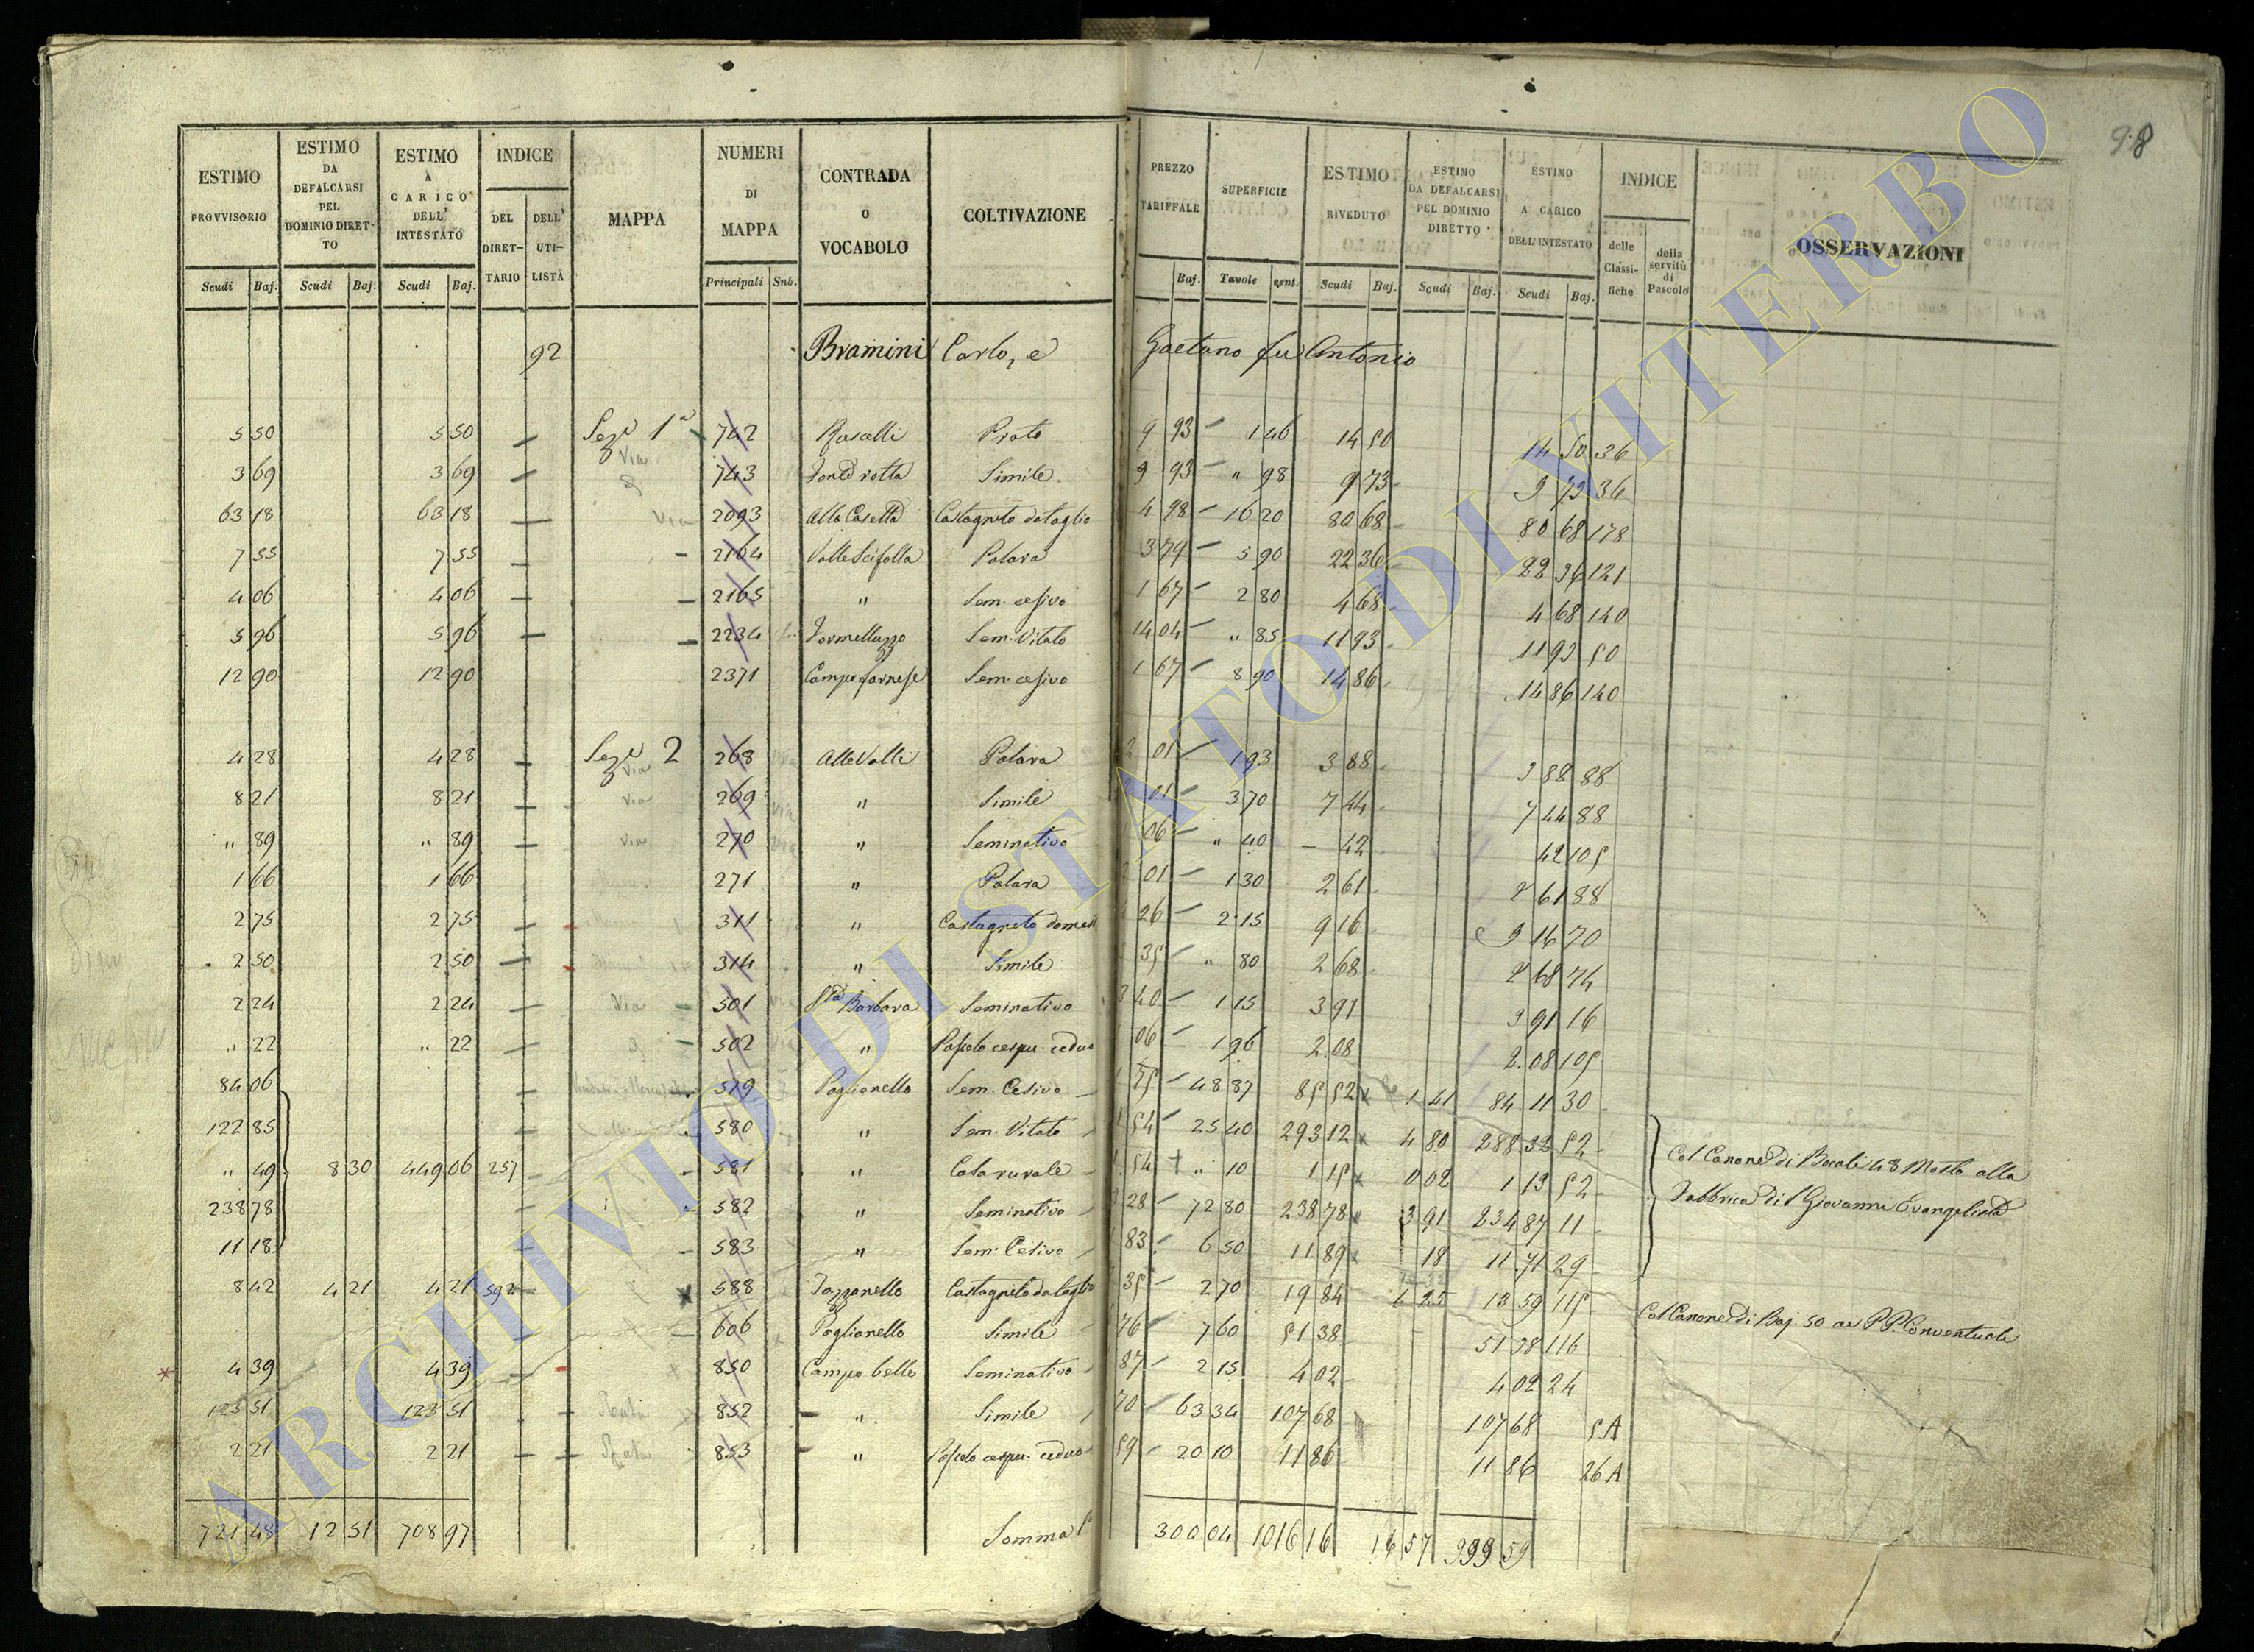 98
ESTIMO PROVVISORIO | ESTIMO DA DEFALCARSI PEL DOMINIO DIRETTO | ESTIMO A CARICO DELL' INTESTATO | INDICE DEL DIRETTARIO | DELL' UTILISTA | MAPPA | NUMERI DI MAPPA | CONTRADA O VOCABOLO | COLTIVAZIONE | PREZZO TARIFFALE | SUPERFICIE | ESTIMO RIVEDUTO | ESTIMO DA DEFALCARSI PEL DOMINIO DIRETTO | ESTIMO A CARICO DELL'INTESTATO | INDICE delle Classifiche | della servitù di Pascolo | OSSERVAZIONI
Scudi Baj. | Scudi Baj. | Scudi Baj. | Principali Sub. | Baj. | Tavole cent. | Scudi Baj. | Scudi Baj. | Scudi Baj.
92 Bramini Carlo, e Gaetano fu Antonio
5 50 | 5 50 | Sezе 1a | 742 | Prato | 9 93 | 1 46 | 14 50 | 14 50 | 36
3 69 | 3 69 | Via | 743 | Simile | 9 93 | " 98 | 9 73 | 9 73 | 36
63 18 | 63 18 | Via | 2093 | Alla Casetta | Castagneto da taglio | 4 98 | 16 20 | 80 68 | 80 68 | 118
7 55 | 7 55 | 2164 | Valle Scifolla | Polara | 3 79 | 5 90 | 22 36 | 22 36 | 121
4 06 | 4 06 | 2165 | " | Sem. cesivo | 1 67 | 2 80 | 4 68 | 4 68 | 140
5 96 | 5 96 | 2234 | Sem. Vitato | 14 04 | " 85 | 11 93 | 11 93 | 50
12 90 | 12 90 | 2371 | Campo farnese | Sem. cesivo | 1 67 | 8 90 | 14 86 | 14 86 | 140
4 28 | 4 28 | Seze 2 | Via | 268 | Alle Valli | Polara | 2 01 | 1 93 | 3 88 | 3 88 | 88
8 21 | 8 21 | Via | 269 | " | Simile | 01 | 3 70 | 7 44 | 7 44 | 88
" 89 | " 89 | Via | 270 | " | Seminativo | 06 | " 40 | – 42 | 42 | 105
1 66 | 1 66 | 271 | " | Polara | 01 | 1 30 | 2 61 | 2 61 | 88
2 75 | 2 75 | 311 | " | Castagneto domes | 26 | 2 15 | 9 16 | 9 16 | 70
2 50 | 2 50 | 314 | " | Simile | 35 | " 80 | 2 68 | 2 68 | 74
2 24 | 2 24 | Via | 501 | Sta Barbara | Seminativo | 3 40 | 1 15 | 3 91 | 3 91 | 16
" 22 | " 22 | 502 | " | Pascolo cespu. ceduo | 06 | 1 96 | 2 08 | 2 08 | 105
84 06 | 579 | Poglianello | Sem. Cesivo | 1 75 | 48 87 | 85 52 | 1 41 | 84 11 | 30
122 85 | 580 | " | Sem. Vitato | 54 | 25 40 | 293 12 | 4 80 | 288 32 | 52
" 49 | 8 30 | 449 06 | 257 | 581 | " | Casa rurale | 54 | " 10 | 1 15 | 0 02 | 1 13 | 52 | Col Canone di Bocali 48 Mosto alla
238 78 | 582 | " | Seminativo | 3 28 | 72 80 | 238 78 | 3 91 | 234 87 | 11 | Fabbrica di S Giovanni Evangelista
11 18 | 583 | " | Sem. Cesivo | 1 83 | 6 50 | 11 89 | 18 | 11 71 | 29
8 42 | 4 21 | 4 21 | 592 | 588 | Castagneto da taglio | 35 | 2 70 | 19 84 | 6 25 | 13 59 | 115 | Col Canone di Baj. 50 ai P.P. Conventuali
606 | Poglianello | Simile | 76 | 7 60 | 51 38 | 51 38 | 116
4 39 | 4 39 | 850 | Campo bello | Seminativo | 87 | 2 15 | 4 02 | 4 02 | 24
123 51 | 123 51 | 852 | " | Simile | 70 | 63 34 | 107 68 | 107 68 | 5A
2 21 | 2 21 | 853 | " | Pascolo cespu. ceduo | 59 | 20 10 | 11 86 | 11 86 | 26A
721 48 | 12 51 | 708 97 | Somma | 300 04 | 1016 16 | 16 57 | 999 59
ARCHIVIO DI STATO DI VITERBO